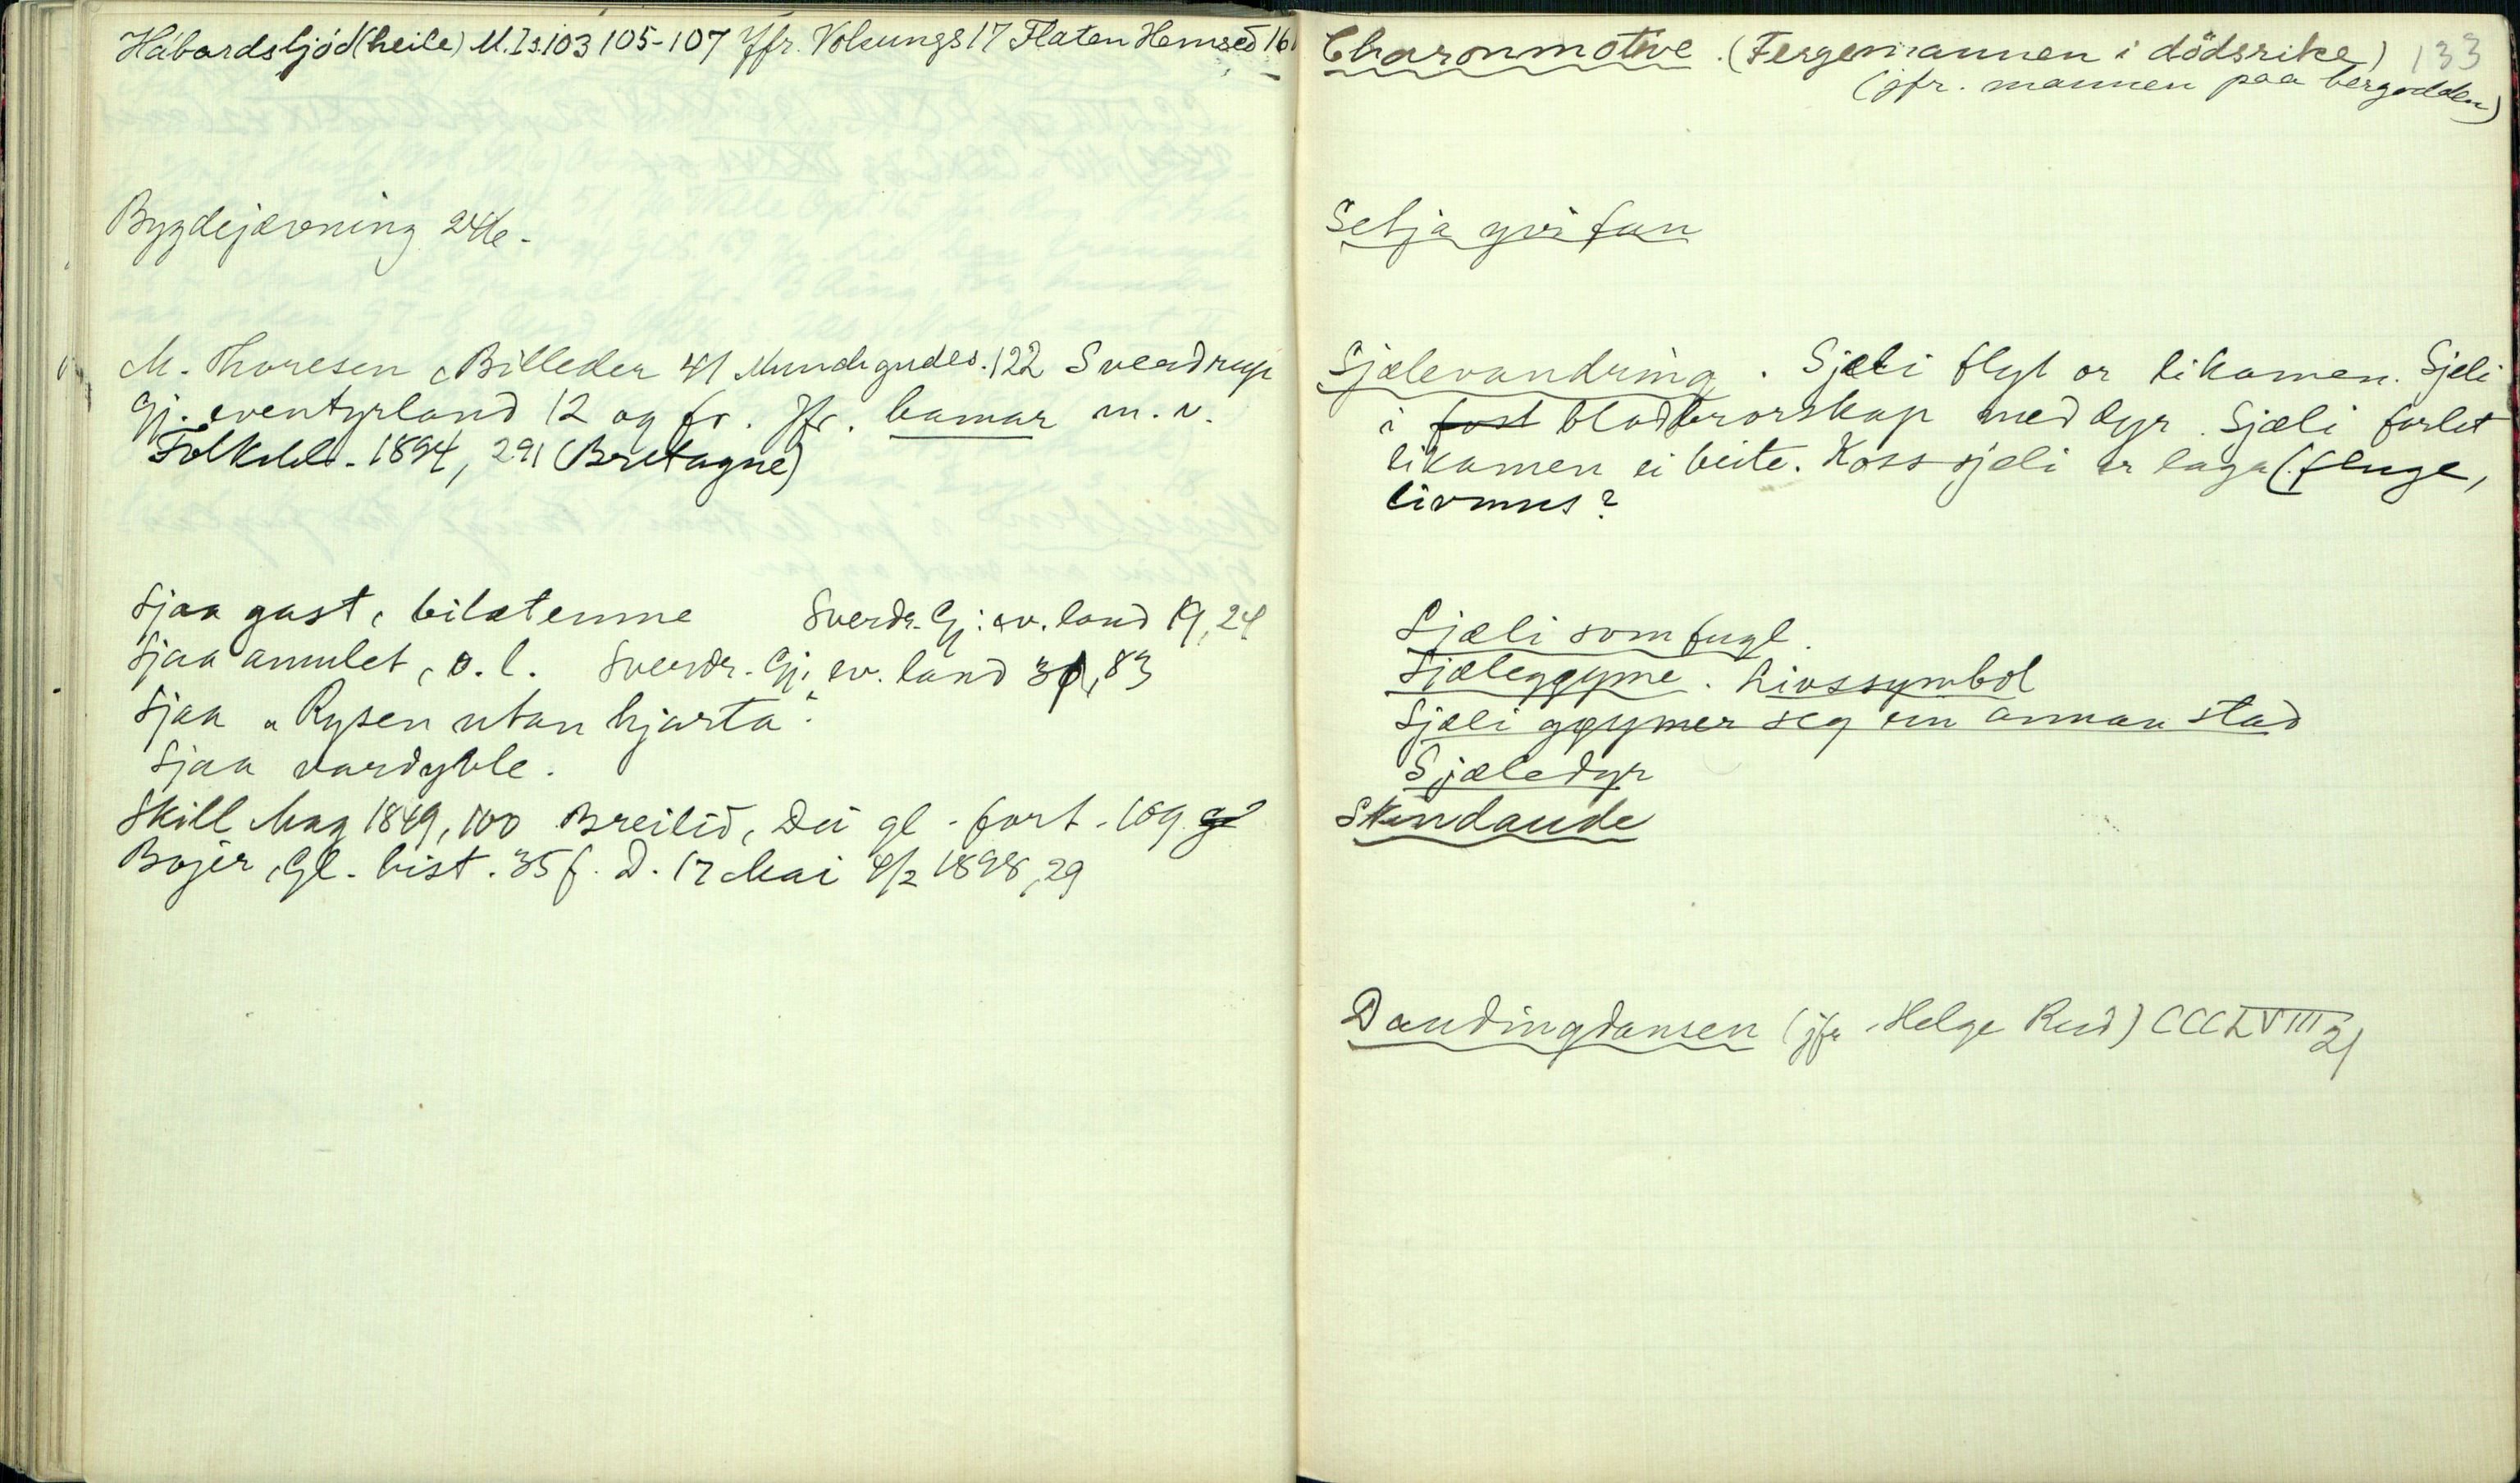 Hábardsljód (heile) M. I s. 103 105-107 Jfr. Volsungs 17 Flaten Hemsed 161
Bygdejævning 246.
M. Thoresen, Billeder 41 Mundigudes. 122 Sverdrup
Gj. eventyrland 12 og fr. Jfr. hamar m. v.
Folkebl. 1894, 291 (Bretagne)
Sjaa gast, bilætenne Sverdr. Gj. ev. land 19, 24
Sjaa amulet, o. l. Sverdr. Gj. ev. land 31, 83
Sjaa "Rysen utan hjarta".
Sjaa vardyvle.
Skill Mag 1849, 100 Breilid, Dei gl. fort. 109
Bojer, Gl. hist. 35 f. D. 17 Mai 4/2 1898, 29
Charonmotive. (Fergemannen i dödsrike) 133
(jfr. mannen paa bergodden)
Setja yvi fan
Sjælevandring. Sjæli flyt or likamen. Sjeli
i fost blodbrorskap med dyr. Sjæli forlet
likamen ei beite. Koss sjæli er laga (fluge,
livmus?
Sjæli som fugl.
Sjæleggyme. Livssymbol
Sjæli gøymer seg ein annan stad
Sjæledyr
Skundaude
Daudingdansen (jfr. Helge Rud) CCCLVIII 21